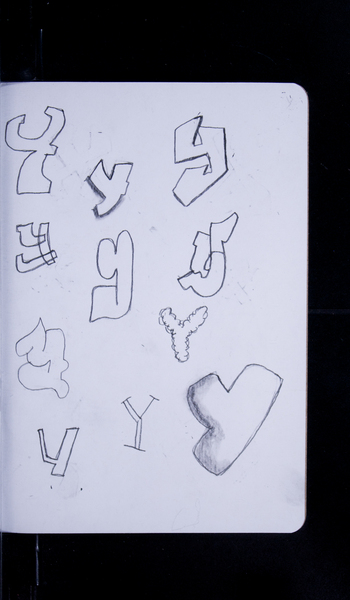 Y y y
y y y
Y
y Y
y Y